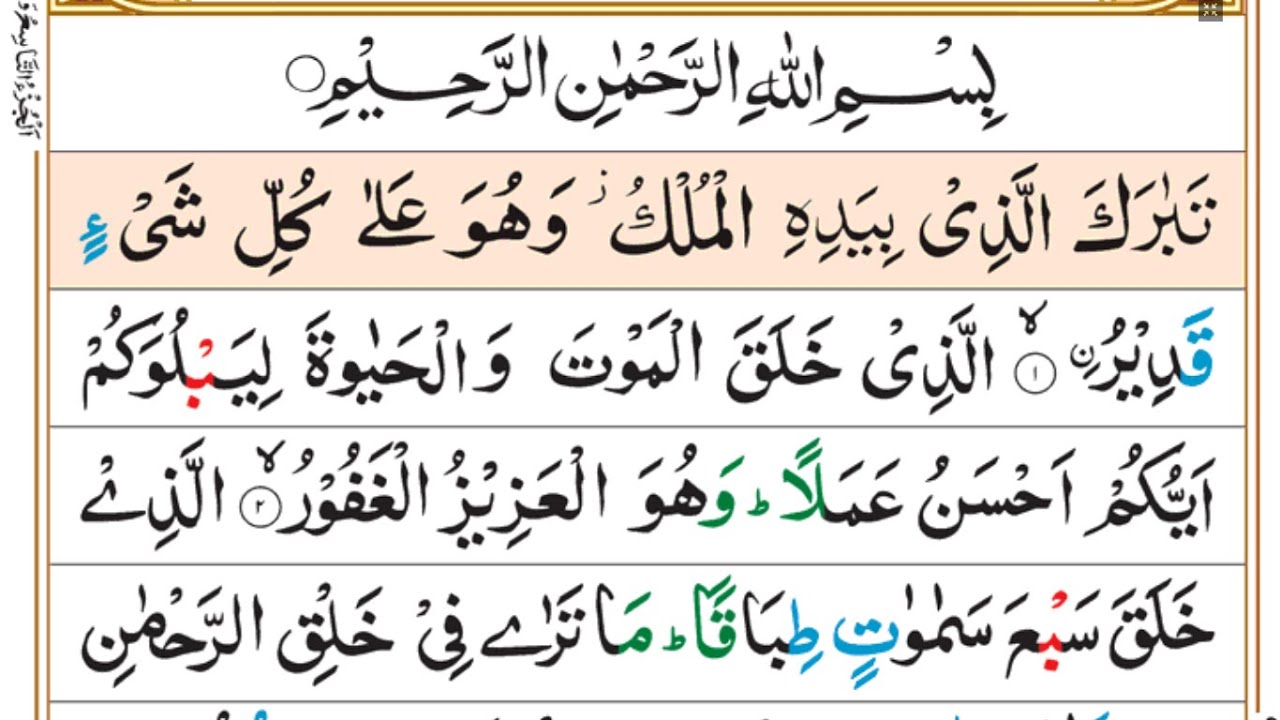 بِسْمِ اللّٰهِ الرَّحْمٰنِ الرَّحِيْمِ ○
تَبٰرَكَ الَّذِىْ بِيَدِهِ الْمُلْكُ ۡز وَهُوَ عَلٰى كُلِّ شَىْءٍ
قَدِيْرُ ۨ ۙ﴿۱﴾ الَّذِىْ خَلَقَ الْمَوْتَ وَالْحَيٰوةَ لِيَبْلُوَكُمْ
اَيُّكُمْ اَحْسَنُ عَمَلًا ؕ وَهُوَ الْعَزِيْزُ الْغَفُوْرُ ۙ﴿۲﴾ الَّذِىْ
خَلَقَ سَبْعَ سَمٰوٰتٍ طِبَاقًا ؕ مَا تَرٰى فِىْ خَلْقِ الرَّحْمٰنِ